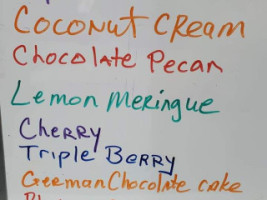 Coconut Cream
Chocolate Pecan
Lemon Meringue
Cherry
Triple Berry
German Chocolate cake